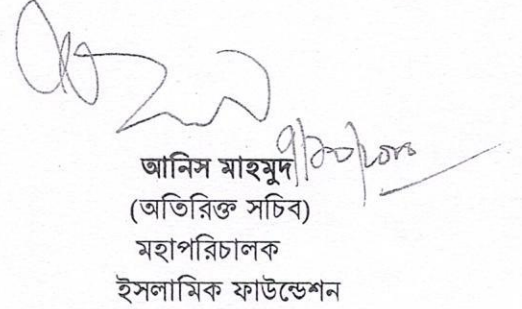 আনিস মাহমুদ
(অতিরিক্ত সচিব)
মহাপরিচালক
ইসলামিক ফাউন্ডেশন